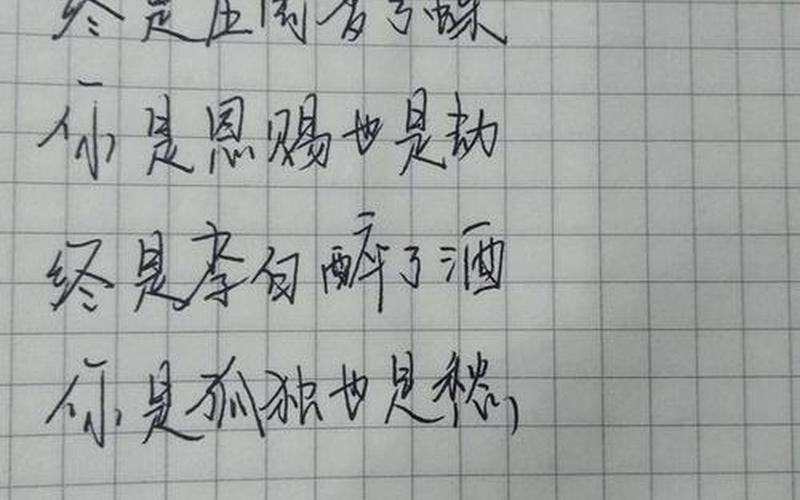 终是庄周梦了蝶
你是恩赐也是劫
终是李白醉了酒
你是孤独也是愁